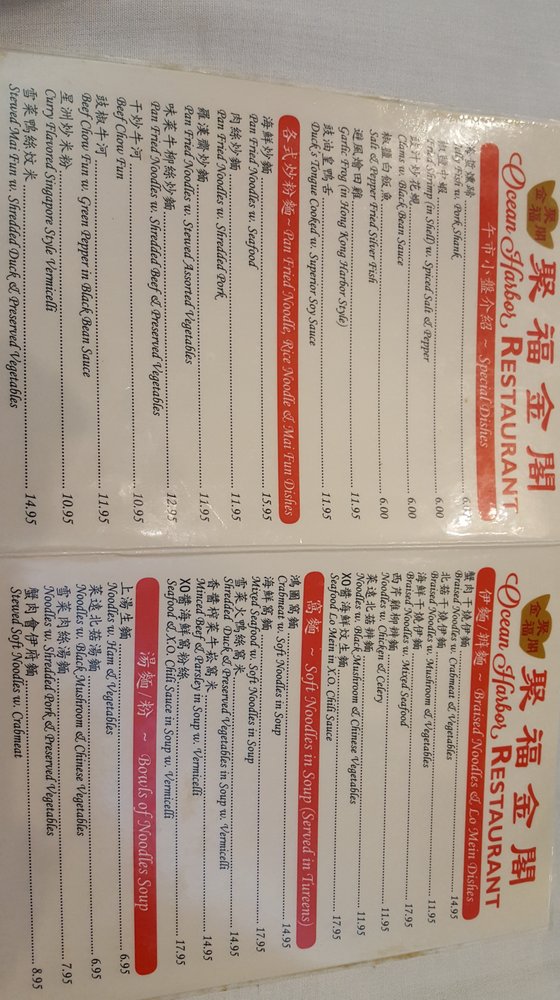 聚福金閣
Ocean Harbor RESTAURANT
午市小盤介紹 ~ Special Dishes
Fish w. Pork Shank
6.00
椒鹽中蝦
Fried Shrimp (in Shell) w. Spiced Salt & Pepper
6.00
豉汁炒花蜆
Clams w. Black Bean Sauce
6.00
椒鹽白飯魚
Salt & Pepper Fried Silver Fish
6.00
避風塘田雞
Garlic Frog (in Hong Kong Harbor Style)
11.95
豉油皇鴨舌
Duck's Tongue Cooked w. Superior Soy Sauce
11.95
各式炒粉麵 ~ Pan Fried Noodle, Rice Noodle & Mai Fun Dishes
海鮮炒麵
Pan Fried Noodles w. Seafood
15.95
肉絲炒麵
Pan Fried Noodles w. Shredded Pork
11.95
羅漢齋炒麵
Pan Fried Noodles w. Stewed Assorted Vegetables
11.95
味菜牛柳絲炒麵
Pan Fried Noodles w. Shredded Beef & Preserved Vegetables
12.95
干炒牛河
Beef Chow Fun
10.95
豉椒牛河
Beef Chow Fun w. Green Pepper in Black Bean Sauce
11.95
星洲炒米粉
Curry Flavored Singapore Style Vermicelli
10.95
雪菜鴨絲炆米
Stewed Mai Fun w. Shredded Duck & Preserved Vegetables
14.95
聚福金閣
Ocean Harbor RESTAURANT
伊麵/辦麵 ~ Braised Noodles & Lo Mein Dishes
蟹肉干燒伊麵
Braised Noodles w. Crabmeat & Vegetables
14.95
北菇干燒伊麵
Braised Noodles w. Mushroom & Vegetables
11.95
海鮮干燒伊麵
Braised Noodles w. Mixed Seafood
17.95
西芹雞柳辦麵
Noodles w. Chicken & Celery
11.95
菜遠北菇辦麵
Noodles w. Black Mushroom & Chinese Vegetables
11.95
XO醬海鮮炆生麵
Seafood Lo Mein in X.O. Chili Sauce
17.95
窩麵 ~ Soft Noodles in Soup (Served in Tureens)
鴻圖窩麵
Crabmeat w. Soft Noodles in Soup
14.95
海鮮窩麵
Mixed Seafood w. Soft Noodles in Soup
17.95
雪菜火鴨絲窩米
Shredded Duck & Preserved Vegetables in Soup w. Vermicelli
14.95
香醬榨菜牛崧窩米
Minced Beef & Parsley in Soup w. Vermicelli
14.95
XO醬海鮮窩粉絲
Seafood & X.O. Chili Sauce in Soup w. Vermicelli
17.95
湯麵粉 ~ Bowls of Noodles Soup
上湯生麵
Noodles w. Ham & Vegetables
6.95
菜遠北菇湯麵
Noodles w. Black Mushroom & Chinese Vegetables
6.95
雪菜肉絲湯麵
Noodles w. Shredded Pork & Preserved Vegetables
7.95
蟹肉會伊府麵
Stewed Soft Noodles w. Crabmeat
8.95